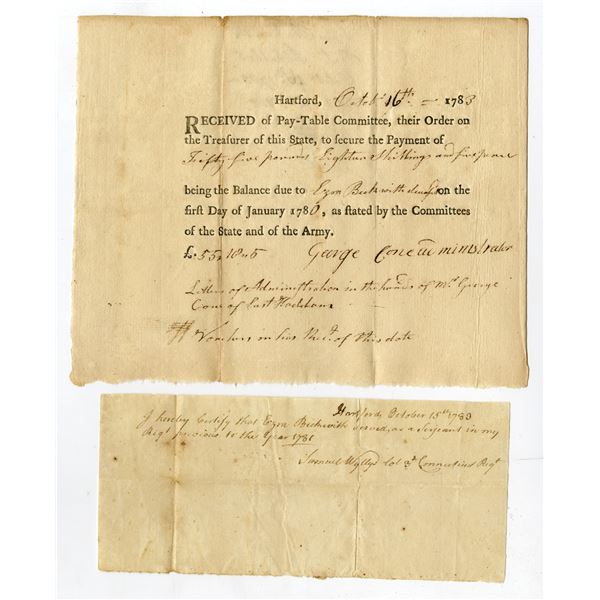 Hartford, Octobr 16th = 1783
RECEIVED of Pay-Table Committee, their Order on
the Treasurer of this State, to secure the Payment of
Fifty five pounds Eighteen Shillings and five pence
being the Balance due to Ezra Beckwith on the
first Day of January 1780, as stated by the Committees
of the State and of the Army.
£.55 18 5 George Cone
Letters of Administration in the hands of Mr. George
Cone of East Haddam
Vouchers in his Rect. of this date
Hartford October 15th 1783
I hereby Certify that Ezra Beckwith served as a Serjeant in my
Regt previous to the Year 1781
Samuel Wyllys Col 3d Connecticut Regt